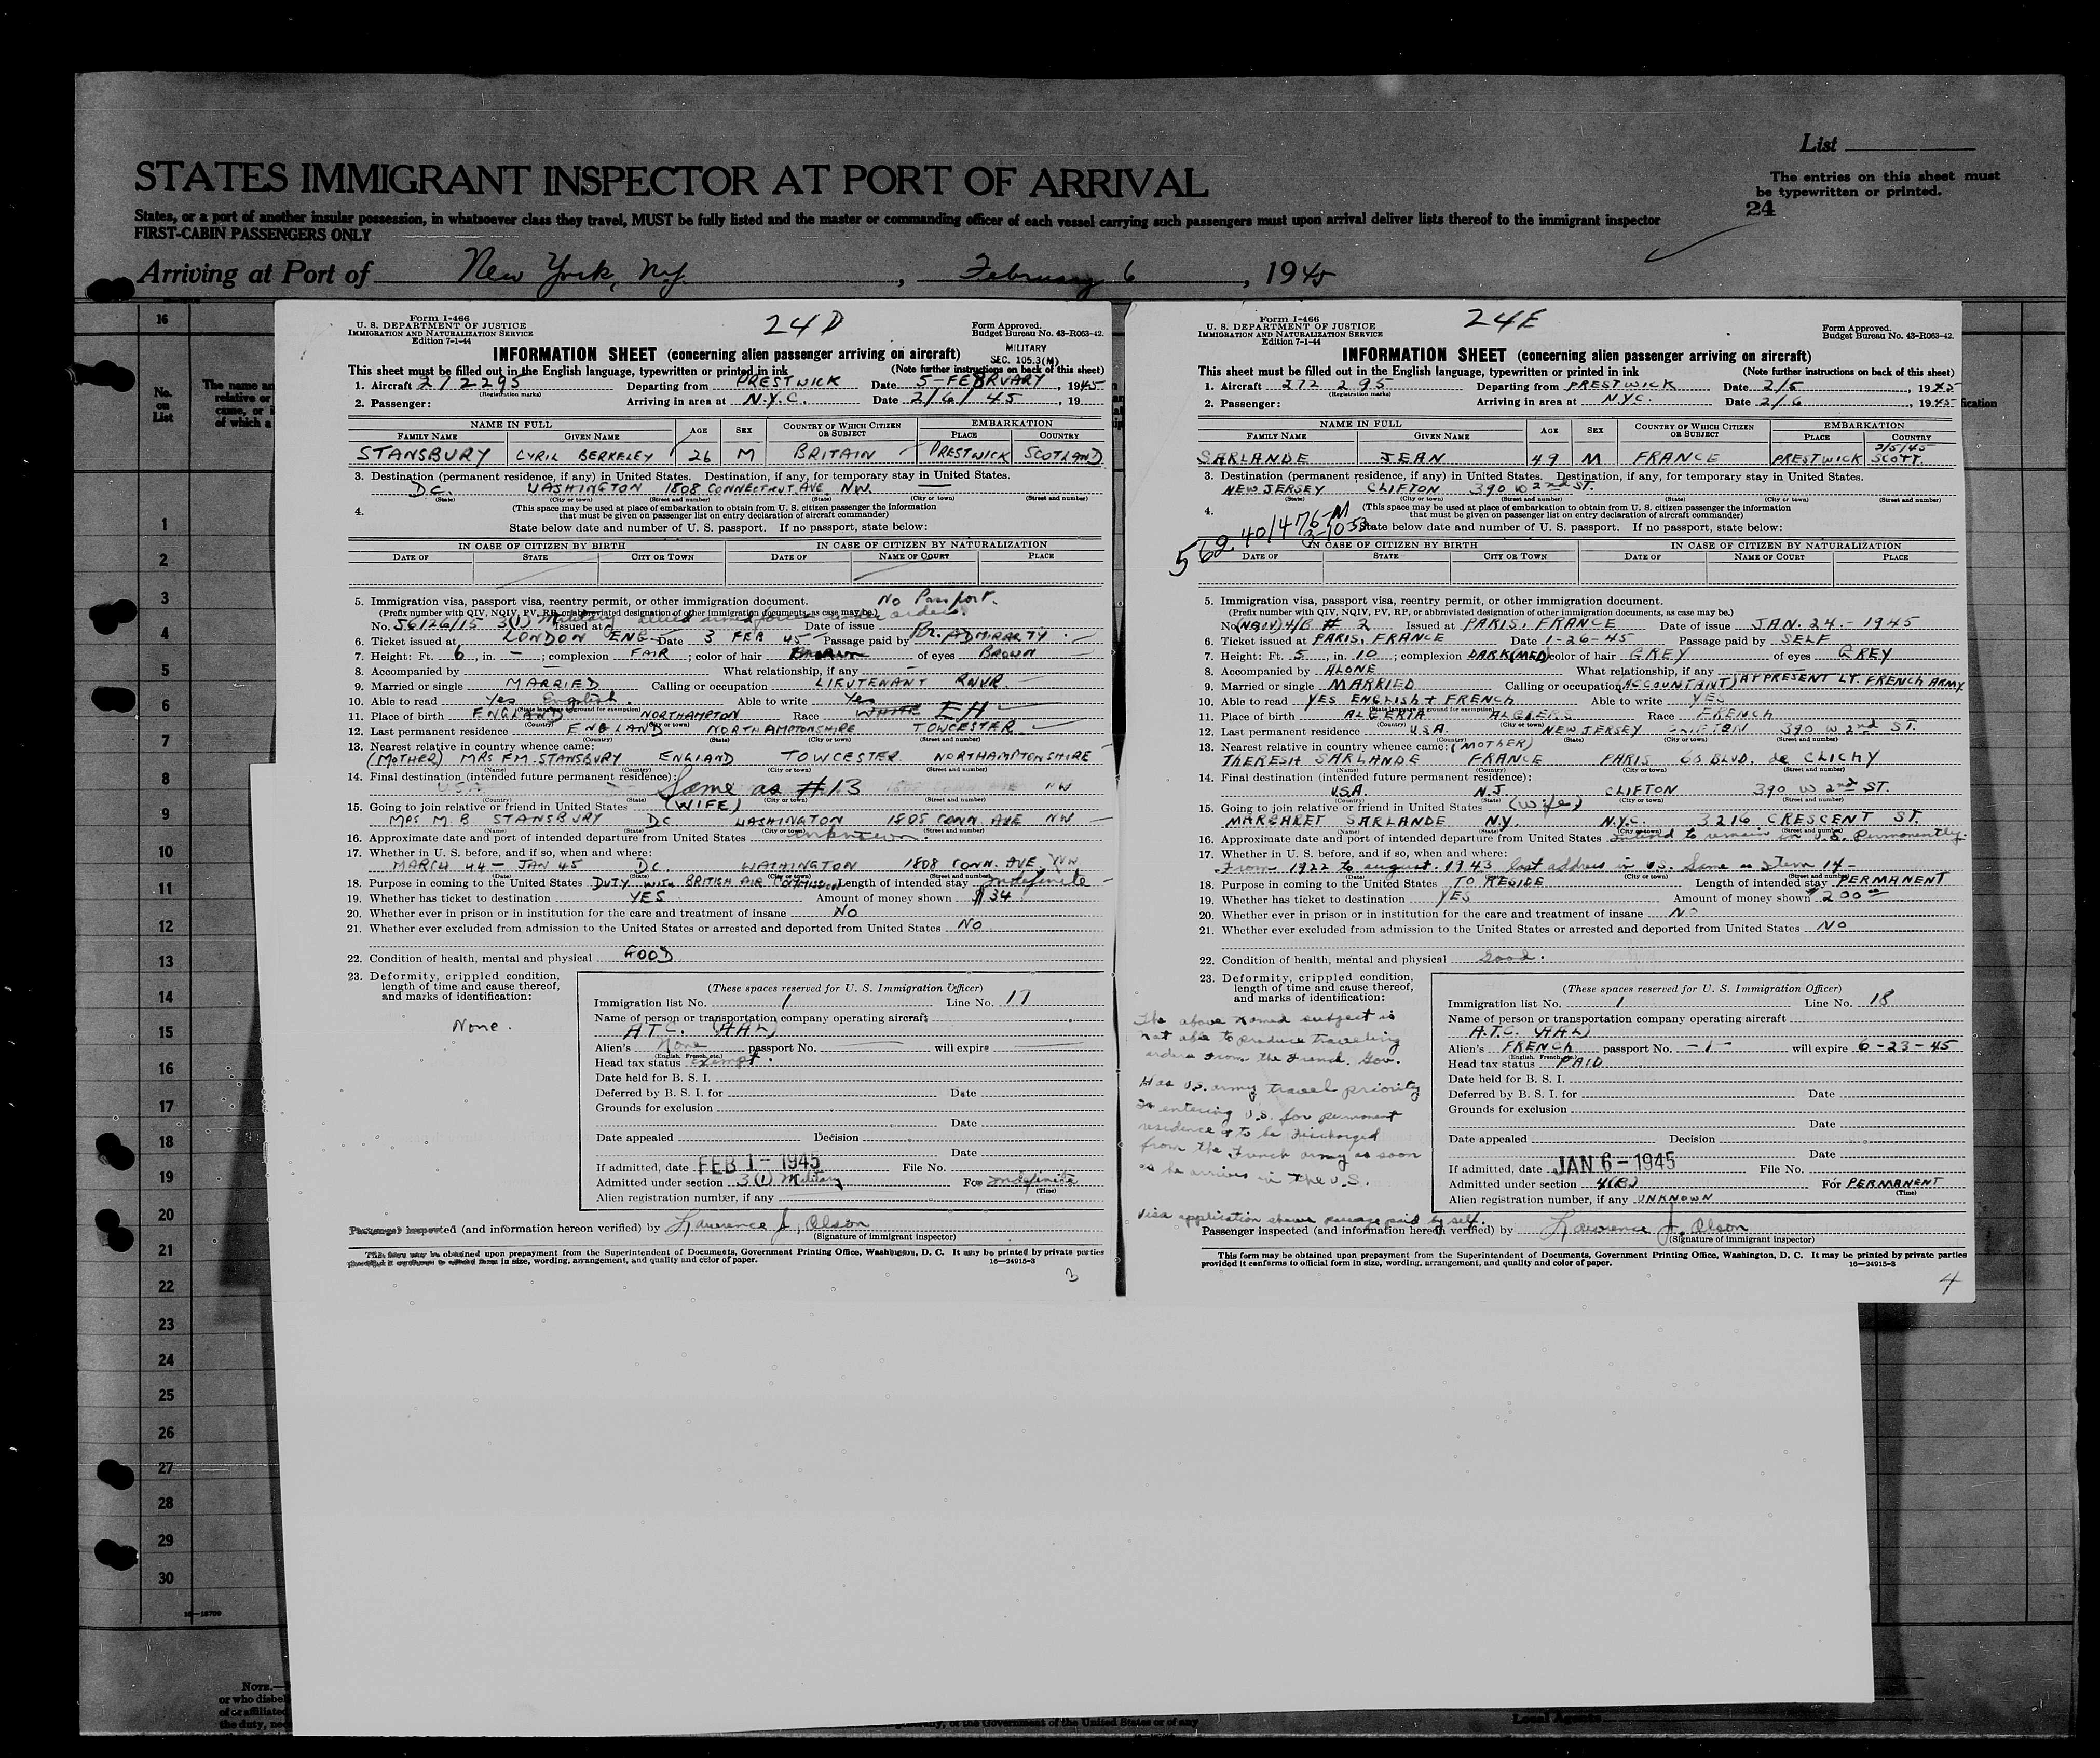 List
The entries on this sheet must
be typewritten or printed.
24
STATES IMMIGRANT INSPECTOR AT PORT OF ARRIVAL
States, or a port of another insular possession, in whatsoever class they travel, MUST be fully listed and the master or commanding officer of each vessel carrying such passengers must upon arrival deliver lists thereof to the immigrant inspector
FIRST-CABIN PASSENGERS ONLY
Arriving at Port of New York, N.Y., February 6, 1945
16
No. on List
The name an
relative or
came, or i
of which a
1
2
3
4
5
6
7
8
9
10
11
12
13
14
15
16
17
18
19
20
21
22
23
24
25
26
27
28
29
30
16—13709
Form I-466
U. S. DEPARTMENT OF JUSTICE
IMMIGRATION AND NATURALIZATION SERVICE
Edition 7-1-44
24D
Form Approved.
Budget Bureau No. 43-R063-42.
MILITARY
SEC. 105.3(M)
INFORMATION SHEET (concerning alien passenger arriving on aircraft)
This sheet must be filled out in the English language, typewritten or printed in ink (Note further instructions on back of this sheet)
1. Aircraft 272295 Departing from PRESTWICK Date 5-FEBRUARY, 1945
(Registration marks)
2. Passenger: Arriving in area at N.Y.C. Date 2/6/45, 19
NAME IN FULL AGE SEX COUNTRY OF WHICH CITIZEN OR SUBJECT EMBARKATION
FAMILY NAME GIVEN NAME PLACE COUNTRY
STANSBURY CYRIL BERKELEY 26 M BRITAIN PRESTWICK SCOTLAND
3. Destination (permanent residence, if any) in United States. Destination, if any, for temporary stay in United States.
D.C. WASHINGTON 1808 CONNECTICUT AVE NW.
(State) (City or town) (Street and number) (State) (City or town) (Street and number)
4. (This space may be used at place of embarkation to obtain from U. S. citizen passenger the information
that must be given on passenger list on entry declaration of aircraft commander)
State below date and number of U. S. passport. If no passport, state below:
IN CASE OF CITIZEN BY BIRTH IN CASE OF CITIZEN BY NATURALIZATION
DATE OF STATE CITY OR TOWN DATE OF NAME OF COURT PLACE
5. Immigration visa, passport visa, reentry permit, or other immigration document. No Passport.
(Prefix number with QIV, NQIV, PV, RP, or abbreviated designation of other immigration documents, as case may be.)
No. 56126/15 3(1) Military allied armed forces under orders Issued at Date of issue
6. Ticket issued at LONDON ENG Date 3 FEB 45 Passage paid by Br. ADMIRALTY
7. Height: Ft. 6, in. –; complexion FAIR; color of hair Brown of eyes BROWN
8. Accompanied by — What relationship, if any —
9. Married or single MARRIED Calling or occupation LIEUTENANT RNVR.
10. Able to read Yes English. Able to write Yes
(State language or ground for exemption)
11. Place of birth ENGLAND NORTHAMPTON Race WHITE EH
(Country) (City or town)
12. Last permanent residence ENGLAND NORTHAMPTONSHIRE TOWCESTER
(Country) (State) (City or town) (Street and number)
13. Nearest relative in country whence came:
(MOTHER) MRS F.M. STANSBURY ENGLAND TOWCESTER. NORTHAMPTONSHIRE
(Name) (Country) (City or town) (Street and number)
14. Final destination (intended future permanent residence):
USA Same as #13 NW
(Country) (State) (City or town) (Street and number)
15. Going to join relative or friend in United States (WIFE)
MRS M. B STANSBURY DC WASHINGTON 1808 CONN. AVE NW
(Name) (State) (City or town) (Street and number)
16. Approximate date and port of intended departure from United States unknown.
17. Whether in U. S. before, and if so, when and where:
MARCH 44 – JAN 45 DC WASHINGTON 1808 CONN. AVE. NW
(Date) (State) (City or town) (Street and number)
18. Purpose in coming to the United States DUTY WITH BRITISH AIR COMMISSION Length of intended stay Indefinite
19. Whether has ticket to destination YES Amount of money shown $34
20. Whether ever in prison or in institution for the care and treatment of insane NO
21. Whether ever excluded from admission to the United States or arrested and deported from United States NO
22. Condition of health, mental and physical GOOD
23. Deformity, crippled condition,
length of time and cause thereof,
and marks of identification:
None.
(These spaces reserved for U. S. Immigration Officer)
Immigration list No. 1 Line No. 17
Name of person or transportation company operating aircraft
A.T.C. (AAL)
Alien's None passport No. will expire
(English, French, etc.)
Head tax status exempt.
Date held for B. S. I.
Deferred by B. S. I. for Date
Grounds for exclusion
Date
Date appealed Decision
Date
If admitted, date FEB 1-1945 File No.
Admitted under section 3(1) Military For Indefinite
(Time)
Alien registration number, if any
Passenger inspected (and information hereon verified) by Lawrence J. Olson
(Signature of immigrant inspector)
This form may be obtained upon prepayment from the Superintendent of Documents, Government Printing Office, Washington, D. C. It may be printed by private parties
provided it conforms to official form in size, wording, arrangement, and quality and color of paper. 16—24915-3
3
Form I-466
U. S. DEPARTMENT OF JUSTICE
IMMIGRATION AND NATURALIZATION SERVICE
Edition 7-1-44
24E
Form Approved.
Budget Bureau No. 43-R063-42.
INFORMATION SHEET (concerning alien passenger arriving on aircraft)
This sheet must be filled out in the English language, typewritten or printed in ink (Note further instructions on back of this sheet)
1. Aircraft 272 295 Departing from PRESTWICK Date 2/5, 1945
(Registration marks)
2. Passenger: Arriving in area at N.Y.C. Date 2/6, 1945
fication
NAME IN FULL AGE SEX COUNTRY OF WHICH CITIZEN OR SUBJECT EMBARKATION
FAMILY NAME GIVEN NAME PLACE COUNTRY
SARLANDE JEAN 49 M FRANCE PRESTWICK SCOTT.
3. Destination (permanent residence, if any) in United States. Destination, if any, for temporary stay in United States.
NEW JERSEY CLIFTON 390 W 2nd ST.
(State) (City or town) (Street and number) (State) (City or town) (Street and number)
4. (This space may be used at place of embarkation to obtain from U. S. citizen passenger the information
that must be given on passenger list on entry declaration of aircraft commander)
State below date and number of U. S. passport. If no passport, state below:
IN CASE OF CITIZEN BY BIRTH IN CASE OF CITIZEN BY NATURALIZATION
DATE OF STATE CITY OR TOWN DATE OF NAME OF COURT PLACE
5. Immigration visa, passport visa, reentry permit, or other immigration document.
(Prefix number with QIV, NQIV, PV, RP, or abbreviated designation of other immigration documents, as case may be.)
No. (NQIV) 4/B # 2 Issued at PARIS, FRANCE Date of issue JAN. 24. - 1945
6. Ticket issued at PARIS, FRANCE Date 1-26-45 Passage paid by SELF
7. Height: Ft. 5, in. 10; complexion DARK (MED) color of hair GREY of eyes GREY
8. Accompanied by ALONE What relationship, if any
9. Married or single MARRIED Calling or occupation (ACCOUNTANT) AT PRESENT LT. FRENCH ARMY
10. Able to read YES ENGLISH + FRENCH Able to write YES
(State language or ground for exemption)
11. Place of birth ALGERIA ALGIERS Race FRENCH
12. Last permanent residence U.S.A. NEW JERSEY CLIFTON 390 W 2nd ST.
(Country) (State) (City or town) (Street and number)
13. Nearest relative in country whence came: (MOTHER)
THERESA SARLANDE FRANCE PARIS BLVD. de CLICHY
(Name) (Country) (City or town) (Street and number)
14. Final destination (intended future permanent residence):
U.S.A. N.J. CLIFTON 390 W 2nd ST.
(Country) (State) (City or town) (Street and number)
15. Going to join relative or friend in United States (Wife)
MARGARET SARLANDE N.Y. N.Y.C. 3216 CRESCENT ST.
(Name) (State) (City or town) (Street and number)
16. Approximate date and port of intended departure from United States Intend to remain in U.S. Permanently.
17. Whether in U. S. before, and if so, when and where:
From 1922 to august. 1943 last address in U.S. Same as Item 14-
(Date) (State) (City or town) (Street and number)
18. Purpose in coming to the United States TO RESIDE Length of intended stay PERMANENT
19. Whether has ticket to destination YES Amount of money shown $200.00
20. Whether ever in prison or in institution for the care and treatment of insane NO
21. Whether ever excluded from admission to the United States or arrested and deported from United States NO
22. Condition of health, mental and physical Good.
23. Deformity, crippled condition,
length of time and cause thereof,
and marks of identification:
The above named subject is
not able to produce traveling
orders from the French Gov.
Has U.S. army travel priority
Is entering U.S. for permanent
residence & to be discharged
from the French army as soon
as he arrives in the U.S.
Visa application shows passage paid by self.
(These spaces reserved for U. S. Immigration Officer)
Immigration list No. 1 Line No. 18
Name of person or transportation company operating aircraft
A.T.C. (AAL)
Alien's FRENCH passport No. -1- will expire 6-23-45
(English, French, etc.)
Head tax status PAID
Date held for B. S. I.
Deferred by B. S. I. for Date
Grounds for exclusion
Date
Date appealed Decision
Date
If admitted, date JAN 6-1945 File No.
Admitted under section 4(B) For PERMANENT
(Time)
Alien registration number, if any UNKNOWN
Passenger inspected (and information hereon verified) by Lawrence J. Olson
(Signature of immigrant inspector)
This form may be obtained upon prepayment from the Superintendent of Documents, Government Printing Office, Washington, D. C. It may be printed by private parties
provided it conforms to official form in size, wording, arrangement, and quality and color of paper. 16—24915-3
4
NOTE.—
or who disbel
of or affiliated
the duty, nec
of the Government of the United States or of any